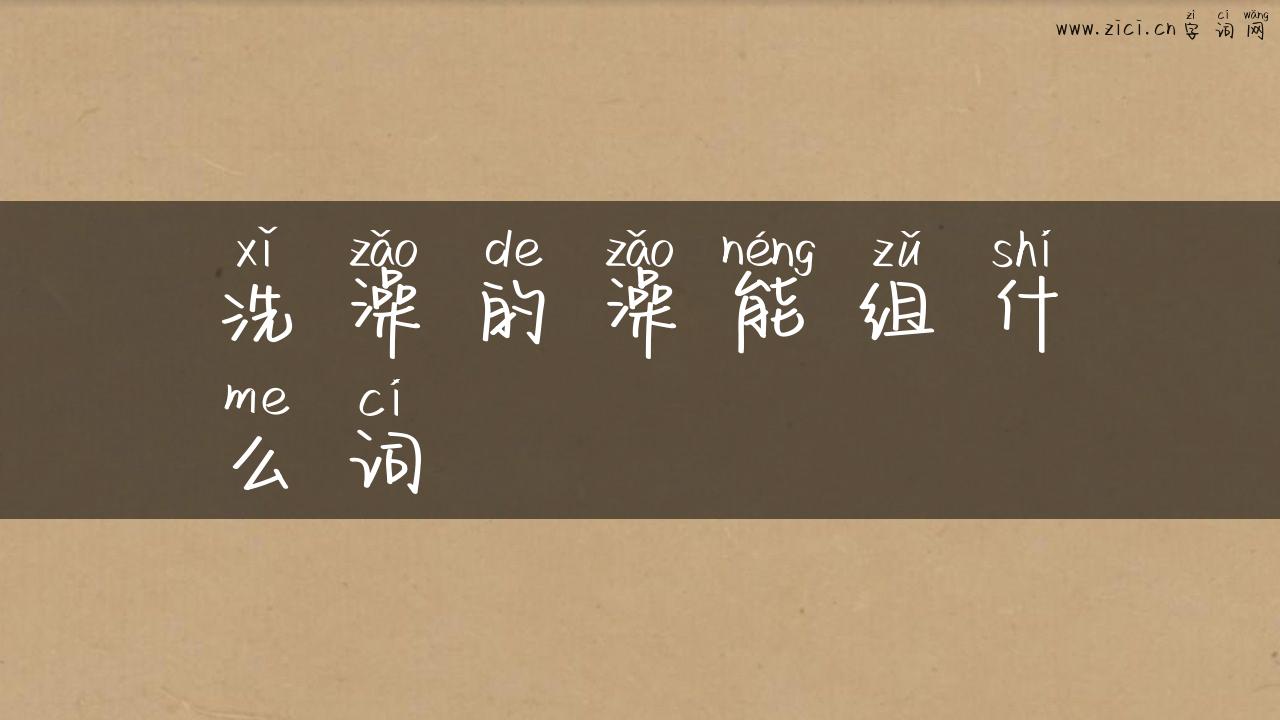 zì cí wǎng
www.zici.cn 字词网
xǐ zǎo de zǎo néng zǔ shí
洗澡的澡能组什
me cí
么词